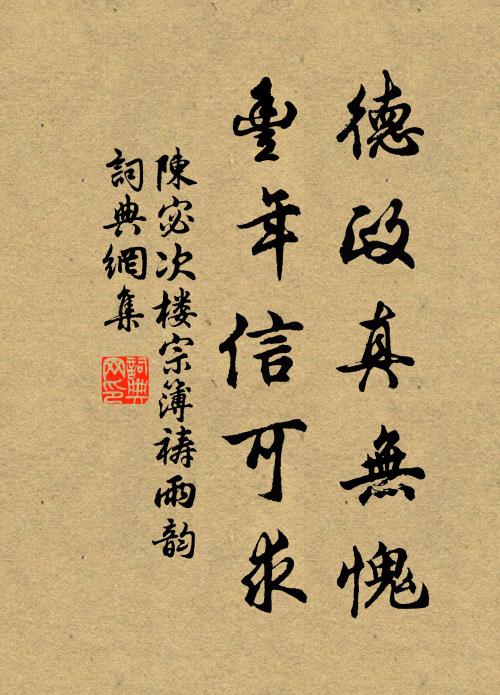 德政真無愧
豐年信可求
陳宓次楼宗簿禱雨韵
詞典網集
詞典
网印